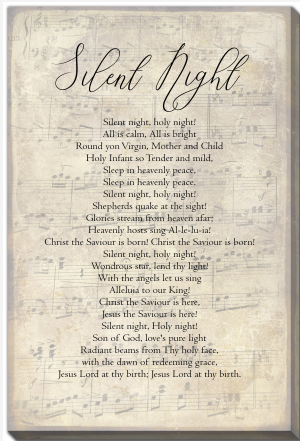 Silent Night
Silent night, holy night!
All is calm, All is bright
Round yon Virgin, Mother and Child
Holy Infant so Tender and mild,
Sleep in heavenly peace,
Sleep in heavenly peace,
Silent night, holy night!
Shepherds quake at the sight!
Glories stream from heaven afar;
Heavenly hosts sing Al-le-lu-ia!
Christ the Saviour is born! Christ the Saviour is born!
Silent night, holy night!
Wondrous star, lend thy light!
With the angels let us sing
Alleluia to our King!
Christ the Saviour is here,
Jesus the Saviour is here!
Silent night, Holy night!
Son of God, love's pure light
Radiant beams from Thy holy face,
with the dawn of redeeming grace,
Jesus Lord at thy birth; Jesus Lord at thy birth.